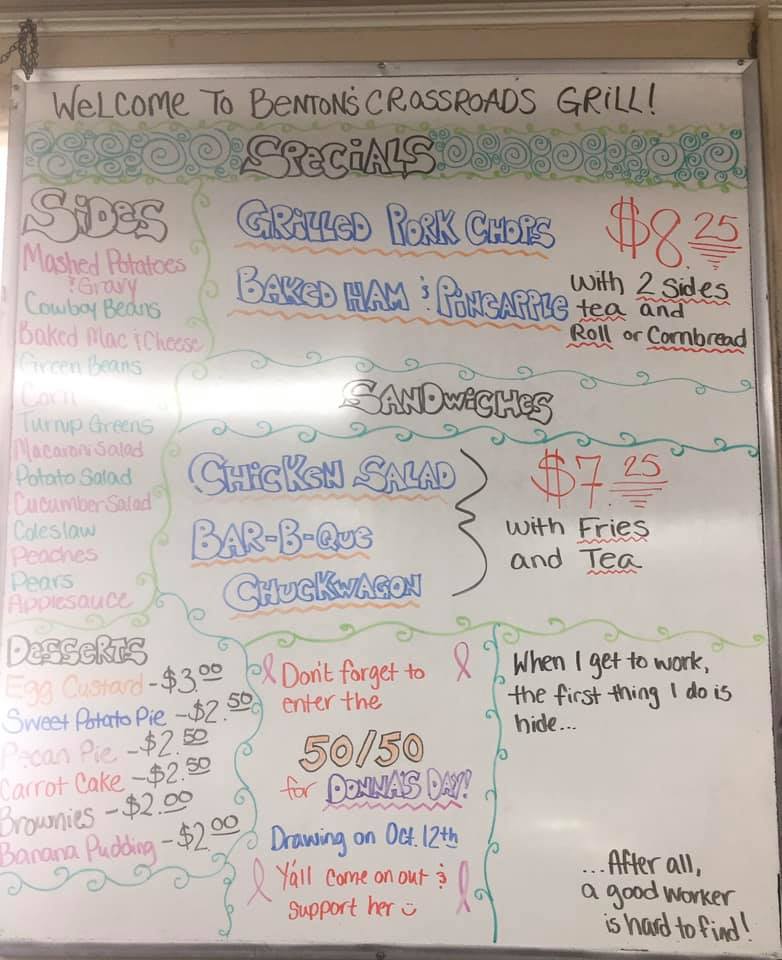 WELCOME TO BENTON'S CROSSROADS GRILL!
SPECIALS
SIDES
Mashed Potatoes
& Gravy
Cowboy Beans
Baked Mac & Cheese
Green Beans
Corn
Turnup Greens
Macaroni Salad
Potato Salad
Cucumber Salad
Coleslaw
Peaches
Pears
Applesauce
GRILLED PORK CHOPS
BAKED HAM & PINEAPPLE
$8.25
with 2 Sides
tea and
Roll or Cornbread
SANDWICHES
CHICKEN SALAD
BAR-B-QUE
CHUCKWAGON
$7.25
with Fries
and Tea
DESSERTS
Egg Custard - $3.00
Sweet Potato Pie - $2.50
Pecan Pie - $2.50
Carrot Cake - $2.50
Brownies - $2.00
Banana Pudding - $2.00
Don't forget to
enter the
50/50
for DONNA'S DAY!
Drawing on Oct. 12th
Y'all come on out &
support her
When I get to work,
the first thing I do is
hide...
...After all,
a good worker
is hard to find!